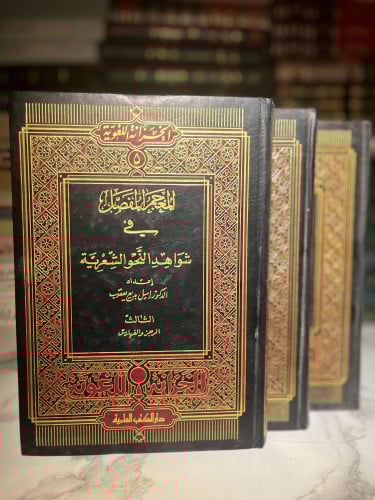 الخزانة اللغوية
٥
المعجم المفصل
في
شواهد النحو الشعرية
إعداد
الدكتور إميل بديع يعقوب
الثالث
الرجز والفهارس
الخزانة اللغوية
دار الكتب العلمية